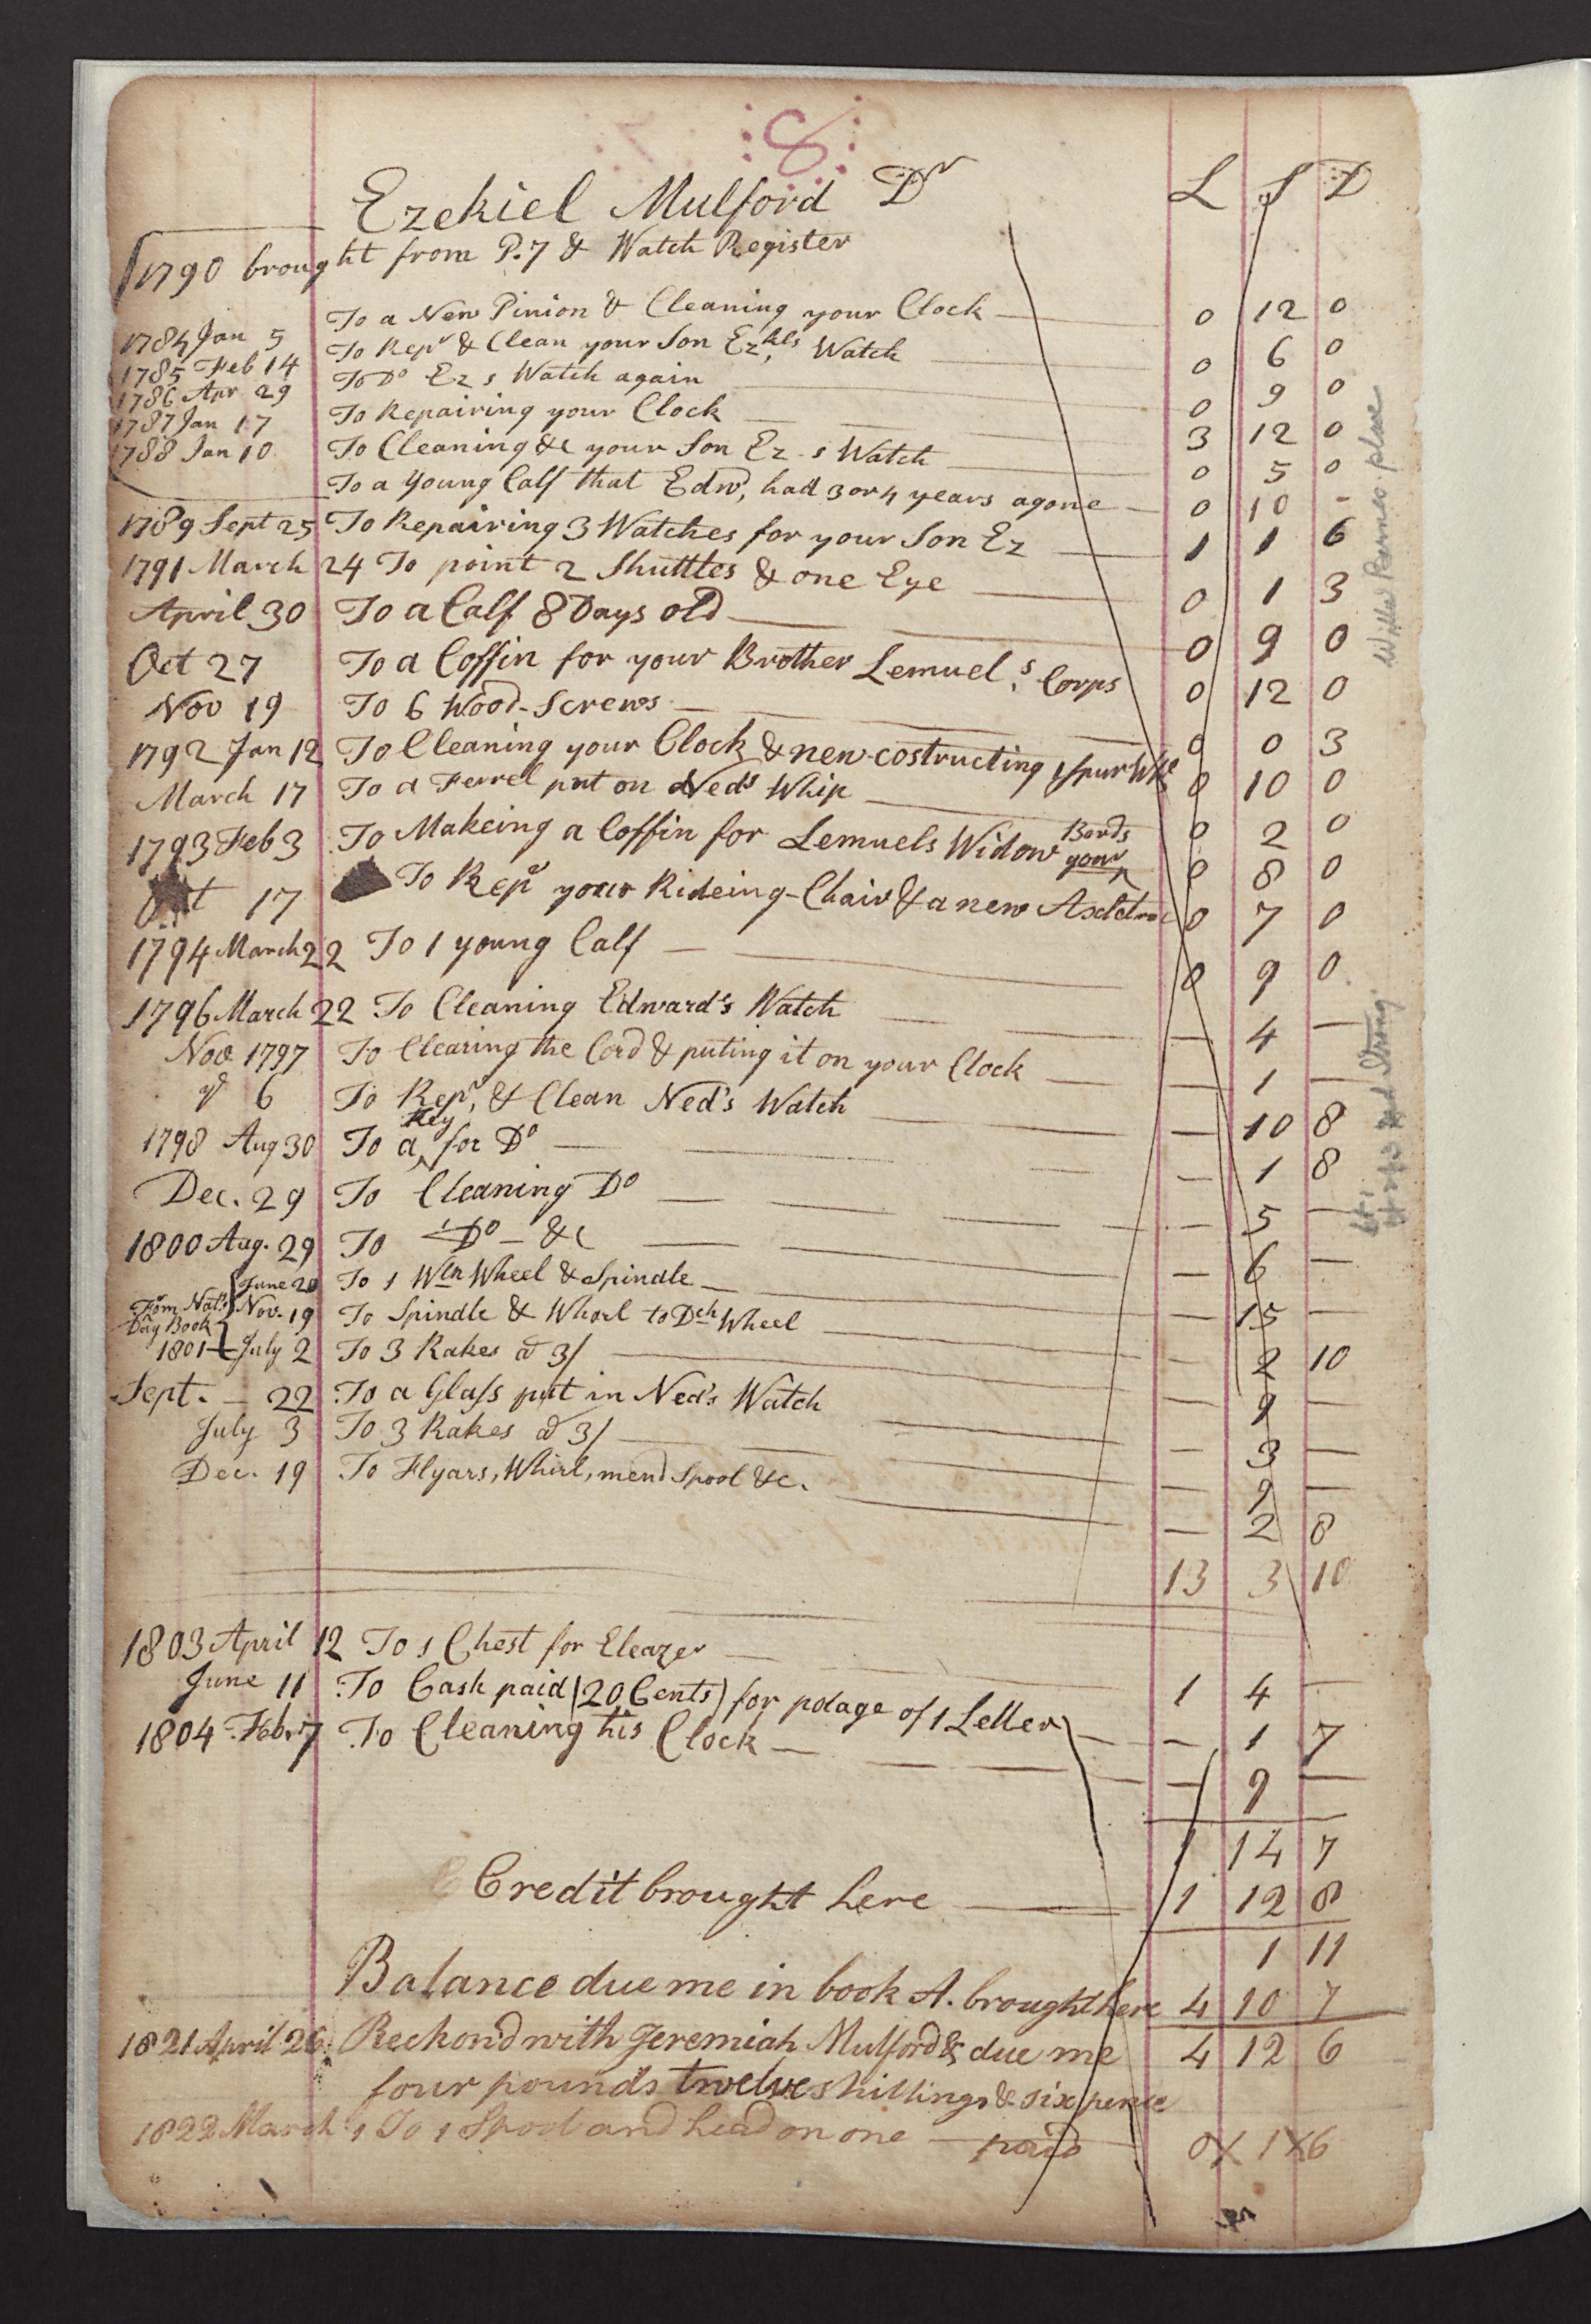 :8:
Ezekiel Mulford Dr L S D
1790 brought from P.7 & Watch Register
1784 Jan 5 To a New Pinion & Cleaning your Clock 0 12 0
1785 Feb 14 To Repr & Clean your Son Ezkls Watch 0 6 0
1786 Apr 29 To Do Ez s Watch again 0 9 0
1787 Jan 17 To Repairing your Clock 3 12 0
1788 Jan 10 To Cleaning &c your Son Ez s Watch 0 5 0
To a Young Calf that Edwd, had 3 or 4 years agone 0 10 -
1789 Sept 25 To Repairing 3 Watches for your Son Ez 1 1 6
1791 March 24 To point 2 Shuttles & one Eye 0 1 3
April 30 To a Calf 8 Days old 0 9 0
Oct 27 To a Coffin for your Brother Lemuel,s Corps 0 12 0
Nov 19 To 6 Wood-Screws 0 0 3
1792 Jan 12 To Cleaning your Clock & new-costructing 1 Spur Whe 0 10 0
March 17 To a Ferrel put on Ned's Whip 0 2 0
1793 Feb 3 To Makeing a Coffin for Lemuels Widow your Bords 0 8 0
Oct 17 To Repr your Rideing-Chair & a new Axeltree 0 7 0
1794 March 22 To 1 young Calf 0 9 0
1796 March 22 To Cleaning Edward's Watch — 4 —
Nov 1797 To Clearing the Cord & puting it on your Clock — 1 —
6 To Repr, & Clean Ned's Watch — 10 8
1798 Aug 30 To a Key for Do — 1 8
Dec. 29 To Cleaning Do — 5 —
1800 Aug. 29 To Do — &c — 6 —
June 20 To 1 Wln Wheel & Spindle — 15 —
From Nat's Day Book Nov. 19 To Spindle & Whorl to Dch Wheel — 2 10
1801 July 2 To 3 Rakes @ 3/ — 9 —
Sept. — 22 To a Glass put in Ned's Watch — 3 —
July 3 To 3 Rakes @ 3/ — 9 —
Dec. 19 To Flyars, Whirl, mend Spool &c. — 2 8
13 3 10
1803 April 12 To 1 Chest for Eleazer 1 4 —
June 11 To Cash paid (20 Cents) for polage of 1 Letter — 1 7
1804 Febr 7 To Cleaning his Clock — 9 —
1 14 7
Credit brought here 1 12 8
1 11
Balance due me in book A. brought here 4 10 7
1821 April 26 Reckond with Jeremiah Mulford & due me 4 12 6
four pounds twelve shillings & six pence
1822 March 1 To 1 Spool and head on one — paid 0 1 6